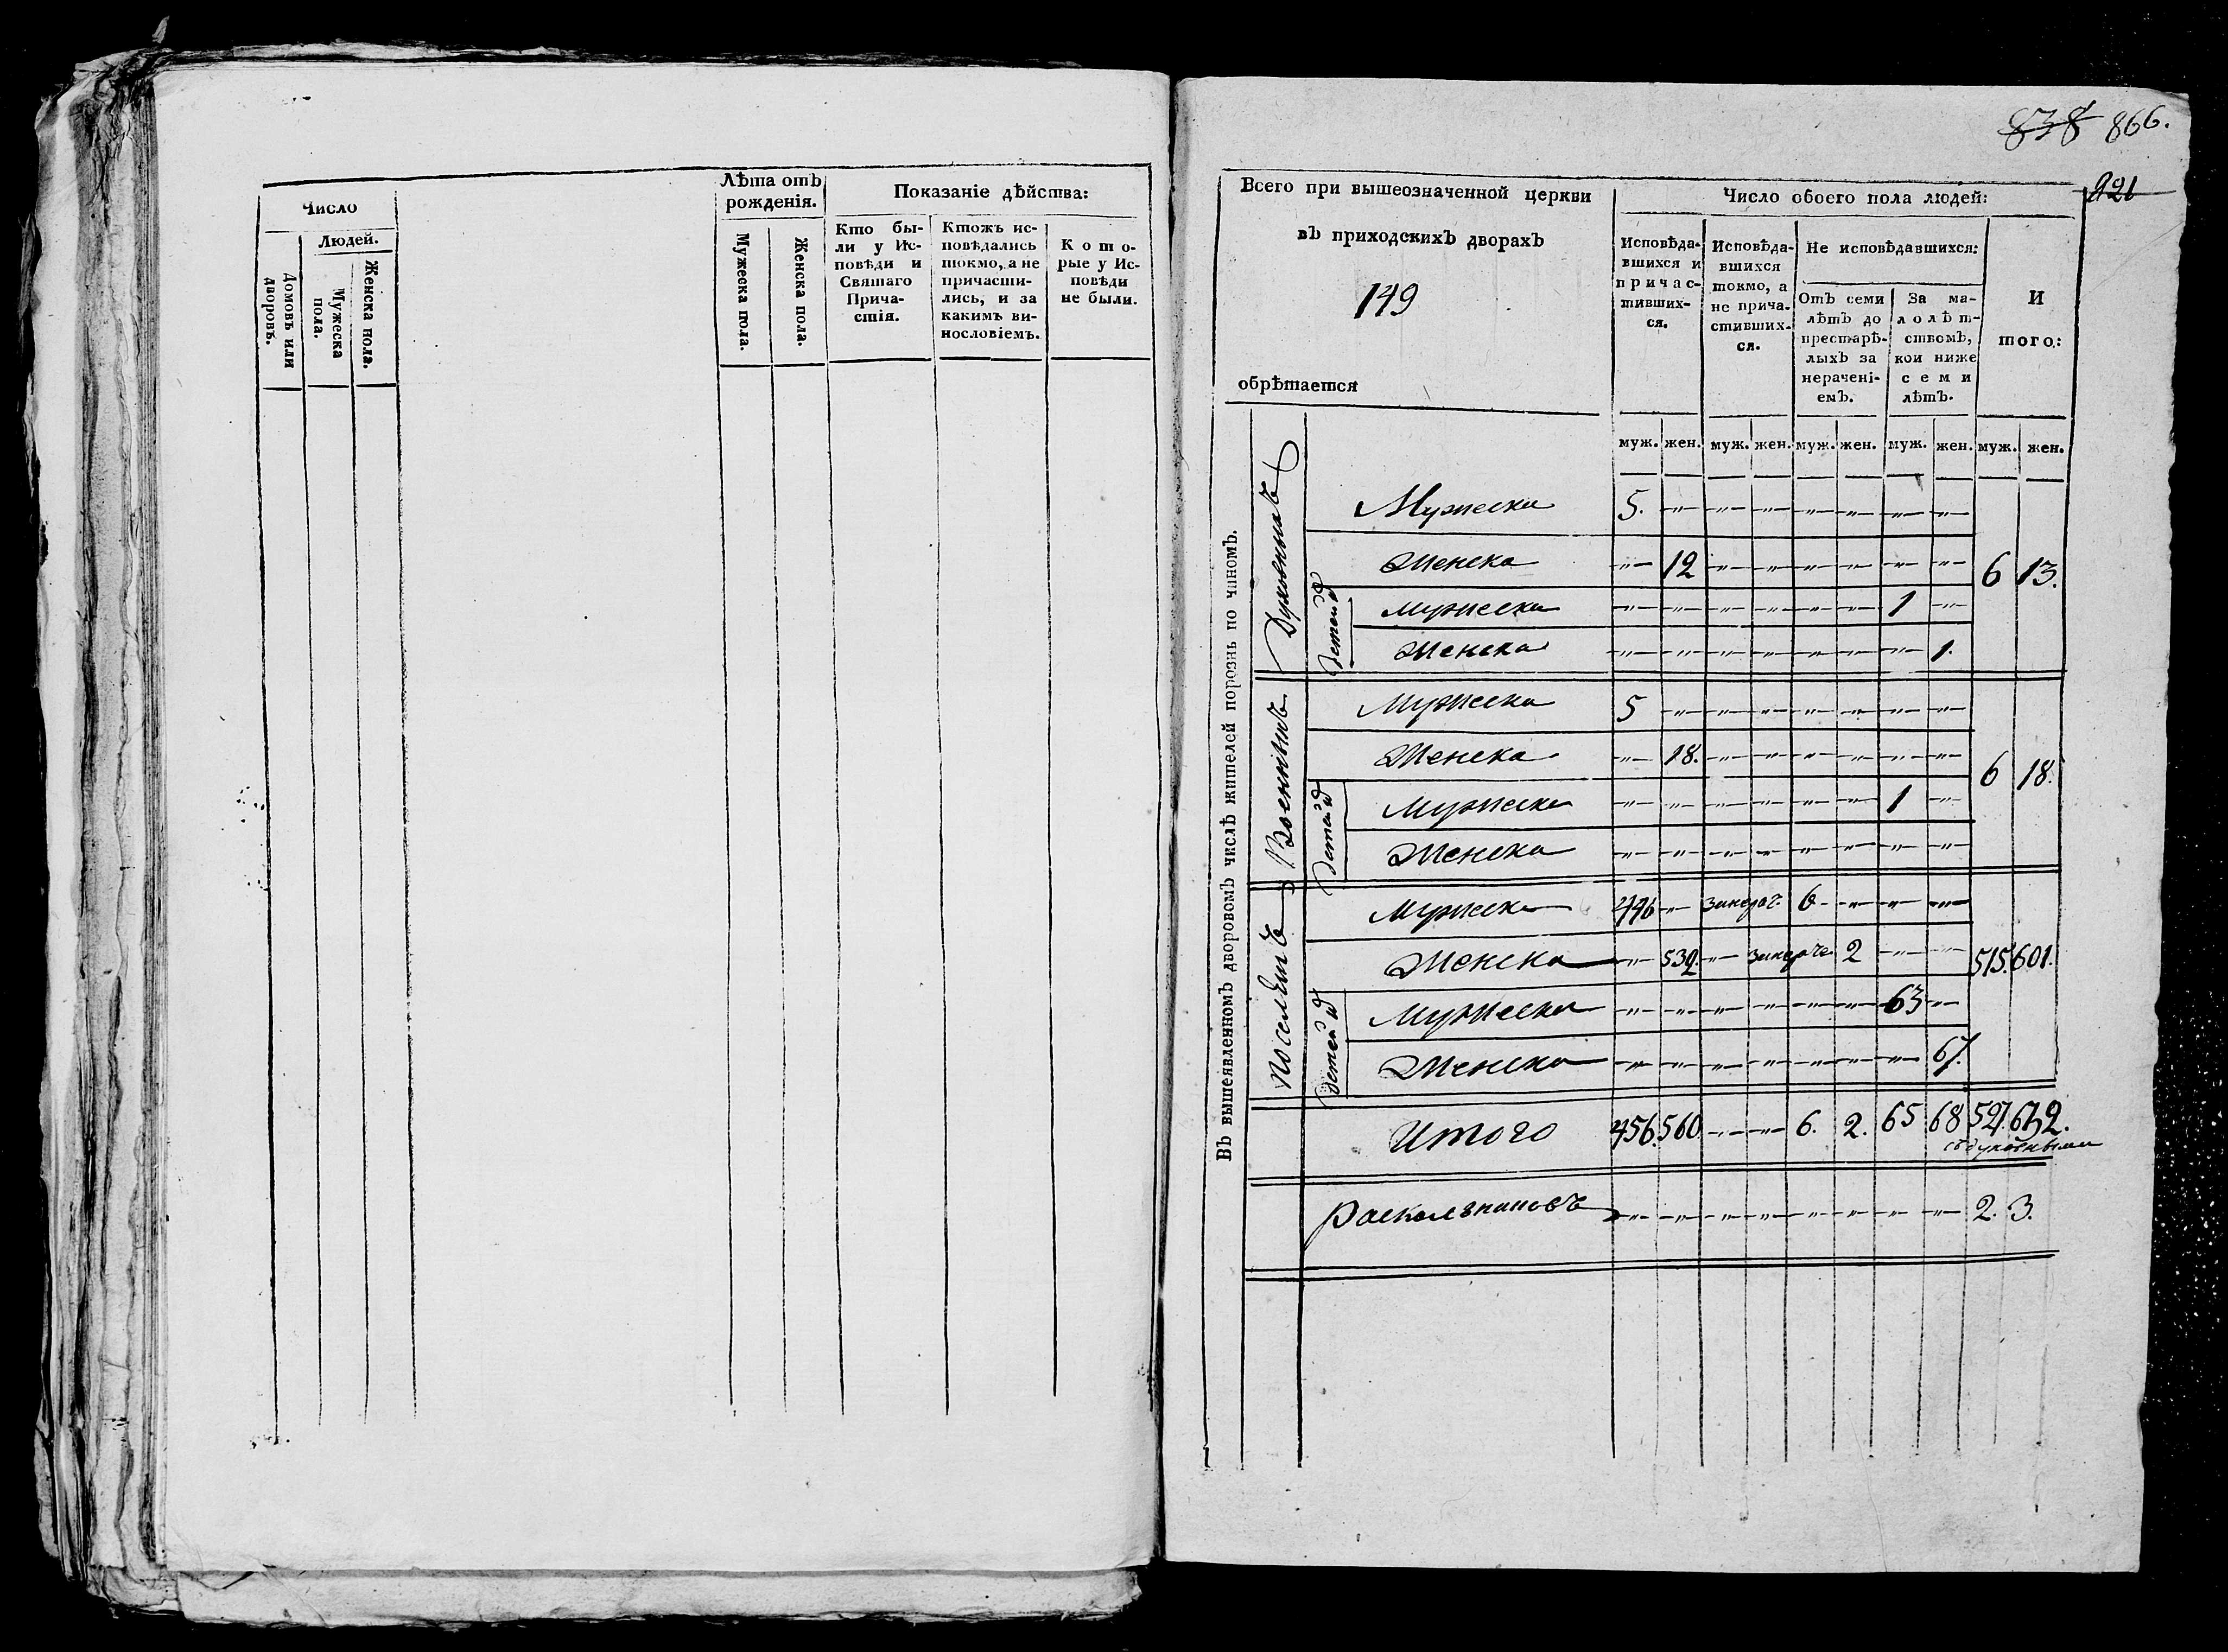 Число
Людей.
Домовъ или дворовъ.
Мужеска пола.
Женска пола.
Лѣта отъ
рожденія.
Мужеска пола.
Женска пола.
Показаніе дѣйства:
Кто бы-
ли у Ис-
повѣди и
Святаго
Прича-
стія.
Ктожъ ис-
повѣдались
токмо, а не
причасти-
лись, и за
какимъ ви-
нословіемъ.
Кото-
рые у Ис-
повѣди
не были.
838 866.
921
Всего при вышеозначенной церкви
въ приходскихъ дворахъ
149
обрѣтается
Число обоего пола людей:
Исповѣда-
вшихся и
причас-
тивших-
ся.
Исповѣда-
вшихся
токмо, а
не прича-
стивших-
ся.
Не исповѣдавшихся:
Отъ семи
лѣтъ до
престарѣ-
лыхъ за
нерачені-
емъ.
За ма-
лолѣт-
ствомъ,
кои ниже
семи
лѣтъ.
И
того:
муж. жен. муж. жен. муж. жен. муж. жен. муж. жен.
Въ вышеявленномъ дворовомъ числѣ жителей порознь по чиномъ.
Духовныхъ
Мужеска 5. -"- -"- -"- -"- -"- -"- -"-
Женска -"- 12 -"- -"- -"- -"- -"- -"- 6 13.
детей
Мужеска -"- -"- -"- -"- -"- -"- 1 -"-
Женска -"- -"- -"- -"- -"- -"- -"- 1.
Военныхъ
Мужеска 5 -"- -"- -"- -"- -"- -"- -"-
Женска -"- 18. -"- -"- -"- -"- -"- -"- 6 18.
детей
Мужеска -"- -"- -"- -"- -"- -"- 1 -"-
Женска -"- -"- -"- -"- -"- -"- -"- -"-
Поселянъ
Мужеска 446 -"- 6 -"- -"- -"-
Женска -"- 532. -"- 2 -"- -"- 515. 601.
детей
Мужеска -"- -"- -"- -"- -"- -"- 63 -"-
Женска -"- -"- -"- -"- -"- -"- -"- 67.
Итого 456. 560. -"- -"- 6. 2. 65 68 527. 632.
съ духовными
Раскольниковъ -"- -"- -"- -"- -"- -"- -"- -"- 2. 3.